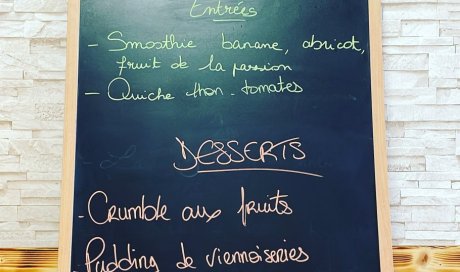 Entrées
- Smoothie banane, abricot,
fruit de la passion
- Quiche thon-tomates
DESSERTS
- Crumble aux fruits
- Pudding de viennoiseries